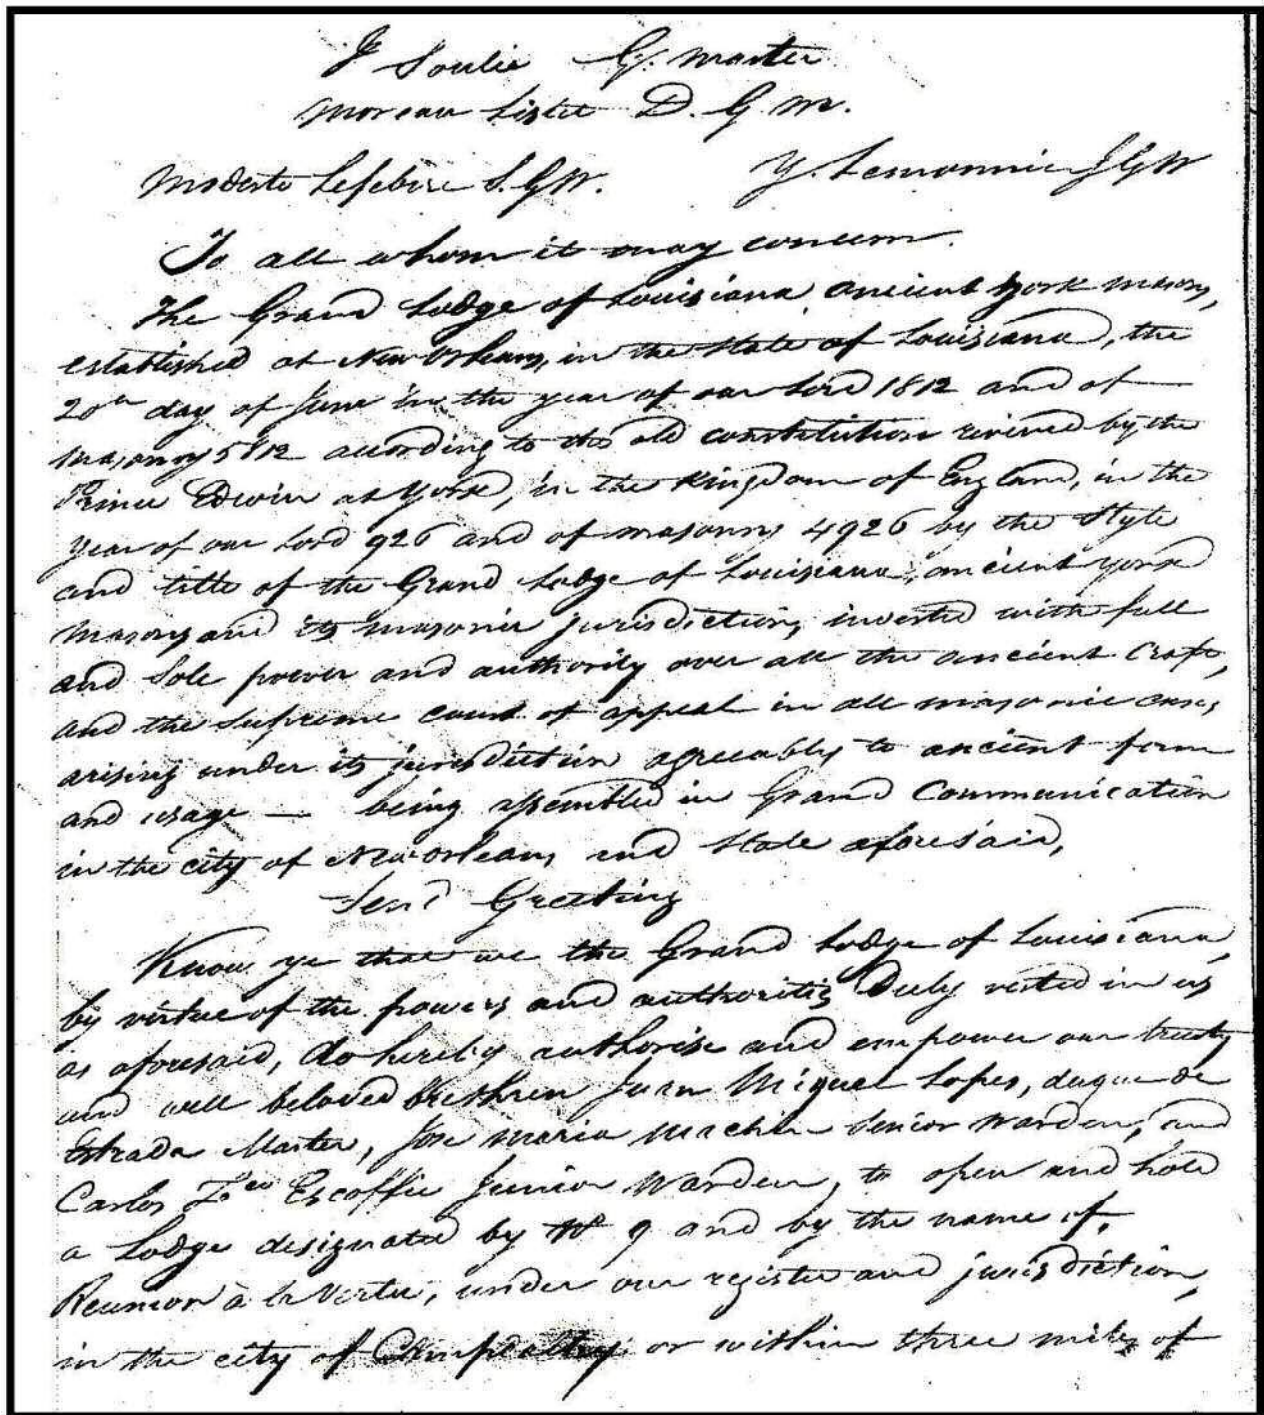 J Soulié G. Master
Moreau Lislet D. G. M.
Modeste Lefebvre S.G.W. Y. Lemonnier J G W
To all whom it may concern.
The Grand Lodge of Louisiana ancient York masons,
established at New Orleans, in the State of Louisiana, the
20th day of June in the year of our Lord 1812 and of
masonry 5812 according to the old constitution revived by the
Prince Edwin at York, in the Kingdom of England, in the
year of our Lord 926 and of masonry 4926 by the Style
and title of the Grand Lodge of Louisiana, ancient york
Masons and its masonic jurisdiction, invested with full
and sole power and authority over all the ancient Craft,
and the supreme court of appeal in all masonic cases,
arising under its jurisdiction agreeably to ancient form
and usage — being assembled in Grand Communication
in the city of New Orleans, and State aforesaid,
Send Greeting
Know ye that we the Grand Lodge of Louisiana,
by virtue of the powers and authorities Duly vested in us
as aforesaid, do hereby authorise and empower our trusty
and well beloved Brethren Juan Miguel Lopes, duque de
Estrada Master, Jose Maria Machin Senior Warden, and
Carlos Escoffie Junior Warden, to open and hold
a Lodge designated by No 9 and by the name of,
Reunion à la Vertu, under our register and jurisdiction,
in the city of or within three miles of